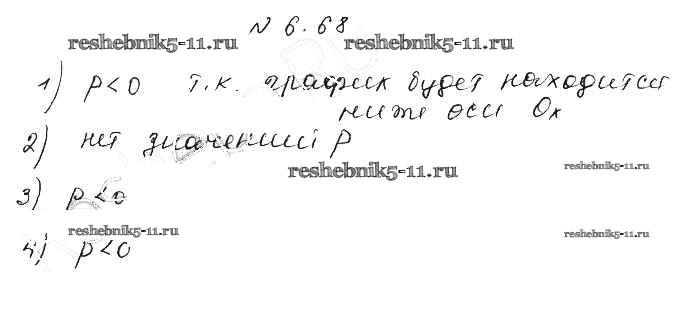 № 6.68
reshebnik5-11.ru reshebnik5-11.ru
1) P<0 т.к. график будет находится
ниже оси Ox
2) нет значений P
reshebnik5-11.ru reshebnik5-11.ru
3) p<0
reshebnik5-11.ru reshebnik5-11.ru
4) p<0